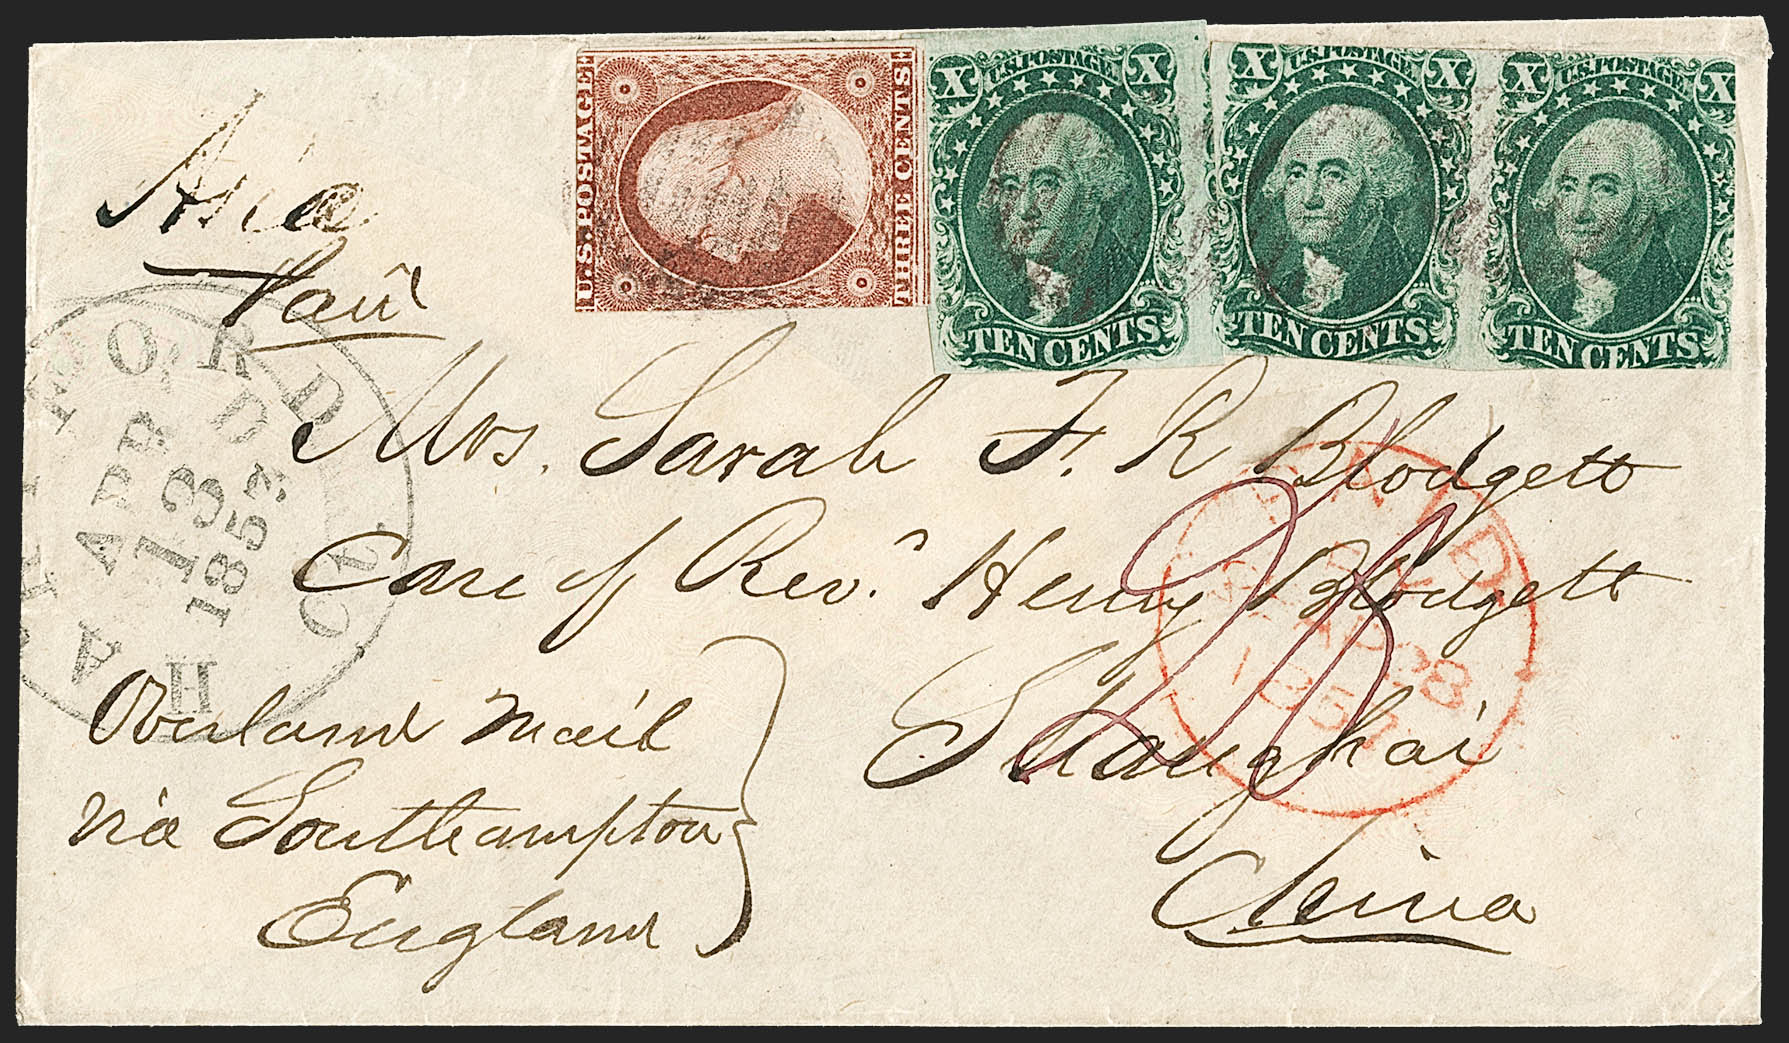 U.S. POSTAGE
THREE CENTS
X U.S. POSTAGE X
TEN CENTS
X U.S. POSTAGE X
TEN CENTS
X U.S. POSTAGE X
TEN CENTS
Asia
Paid
HARTFORD Ct.
APR
13
1857
Mrs. Sarah F. R Blodgett
Care of Rev. Henry Blodgett
Shanghai
China
Overland Mail
via Southampton
England
PAID
AP 28
1857